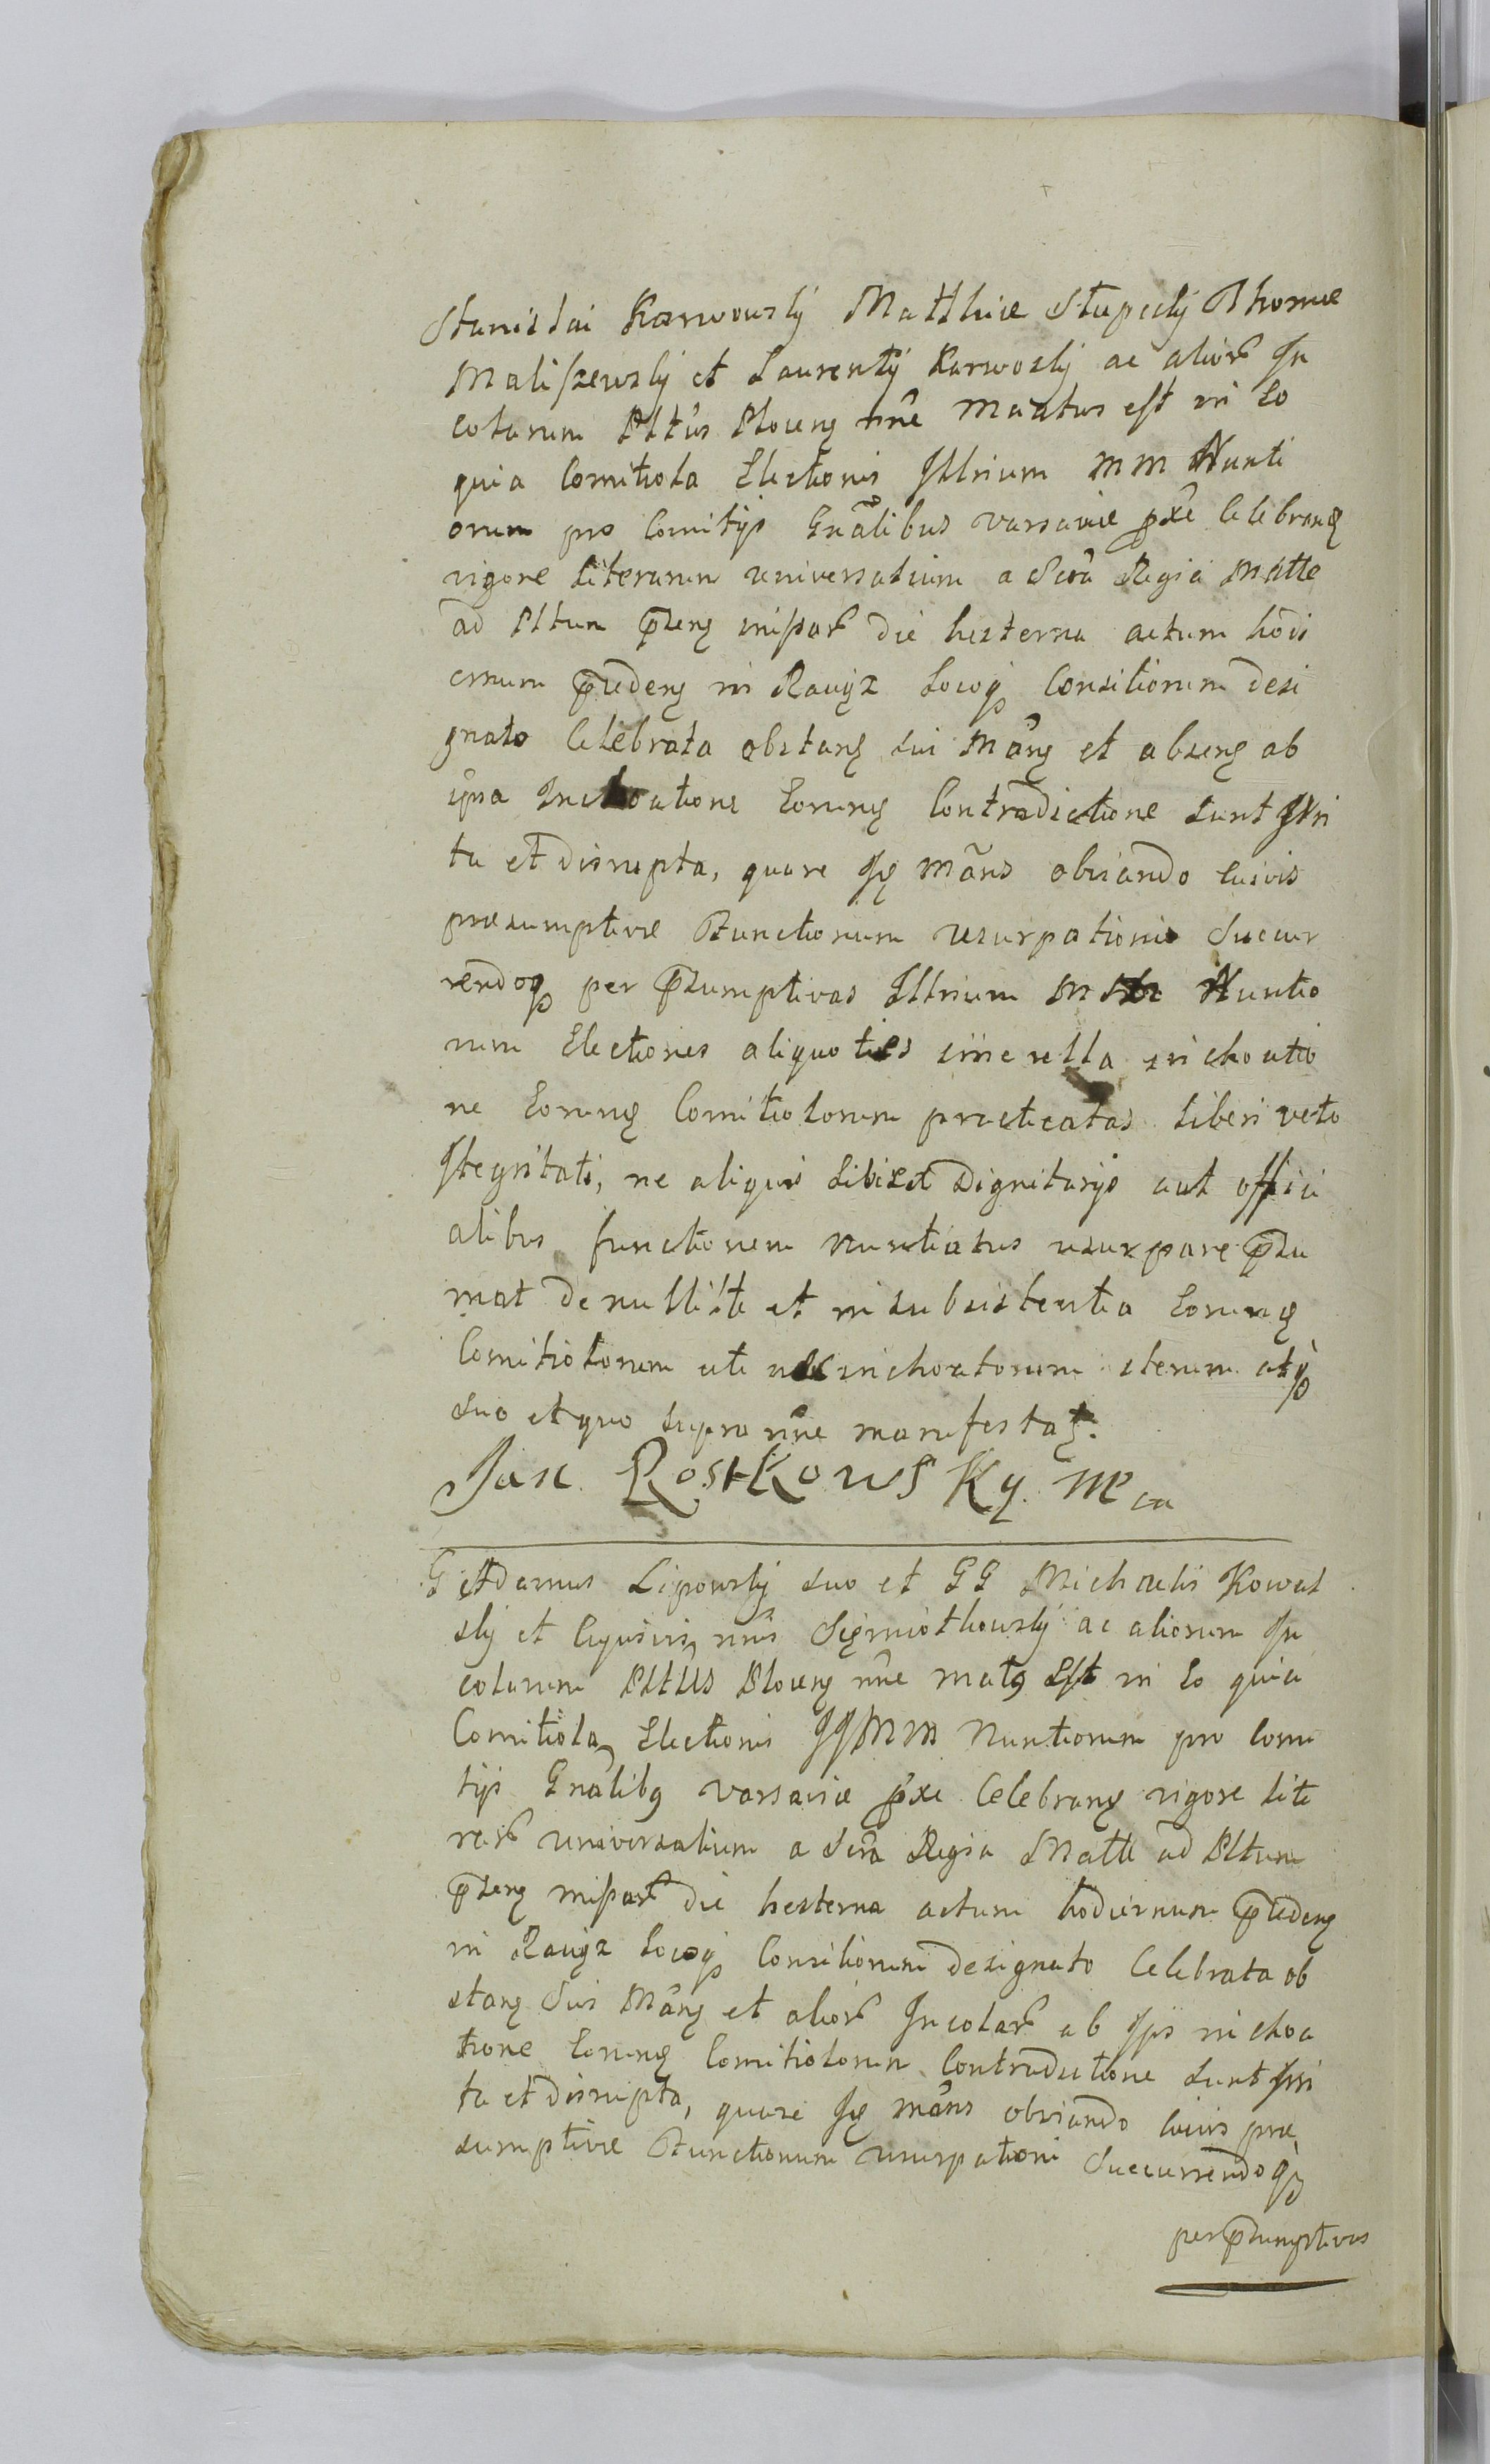 Stanislai Karwowsky Matthiæ Słupecky Thomæ
Maliszewsky et Laurentÿ Karwosky ac alior In
colarum Plttûs Plocens nne mãatus est in Eo
quia Comitiola Electionis Illrium MM Nunti
orum pro Comitÿs Gnâlibus varsaviæ pxe Celebrans
vigore Literarum universalium a Scrã Regiã Matte
ad Plttum pzens emissar die hesterna actum hodi
ernum præcedens in Raciąz Locoq Consiliorum desi
gnato Celebrata obstans sui Mãns et absens ab
ipsa Inchoatione Eorums Contradictione sunt Irri
ta et disrupta, quare Is Mãns obviando cuivis
præsumptivæ Functionum usurpationi Succur
rendoq per præsumptivas Illrium MM Nuntio
rum Electiones aliquoties sine ulla inchoatio
ne Eorums Comitiolorum practicatas Liberi veto
Itegritati, ne aliquis Sibi et Dignitarÿs aut offici
alibus functionem Nuntiatus usurpare præsu
mat de nullitte et in subsistentia Eorums
Comitiolorum uti nec inchoatorum iterum atq
Suo et quo supra nne manifestat.
Jan Rostkowsky mp
G Adamus Lipowsky suo et GG Michaelis Kowal
sky et Cujusvis nnis Sięmiothowsky ac aliorum In
colarum Plttûs Plocens nne matq Est in Eo quia
Comitiola Electionis IIMM Nuntiorum pro Comi
tÿs Gnâlibq varsaviæ pxe Celebrans vigore Lite
rar universalium a Scra Regia Matte ad Plttum
pzens missar die hesterna actum hodiernum præcedens
in Raciąz Locoq Consiliorum designato Celebrata ob
stans Sui Mãns et alior Incolar ab Ipsis inchoa
tione Eorums Comitiolorum Contradictione sunt Irri
ta et disrupta, quare Is mãns obviando cuivis præ
sumptivæ Functionum usurpationi Succurrendoq
per præsumptivas